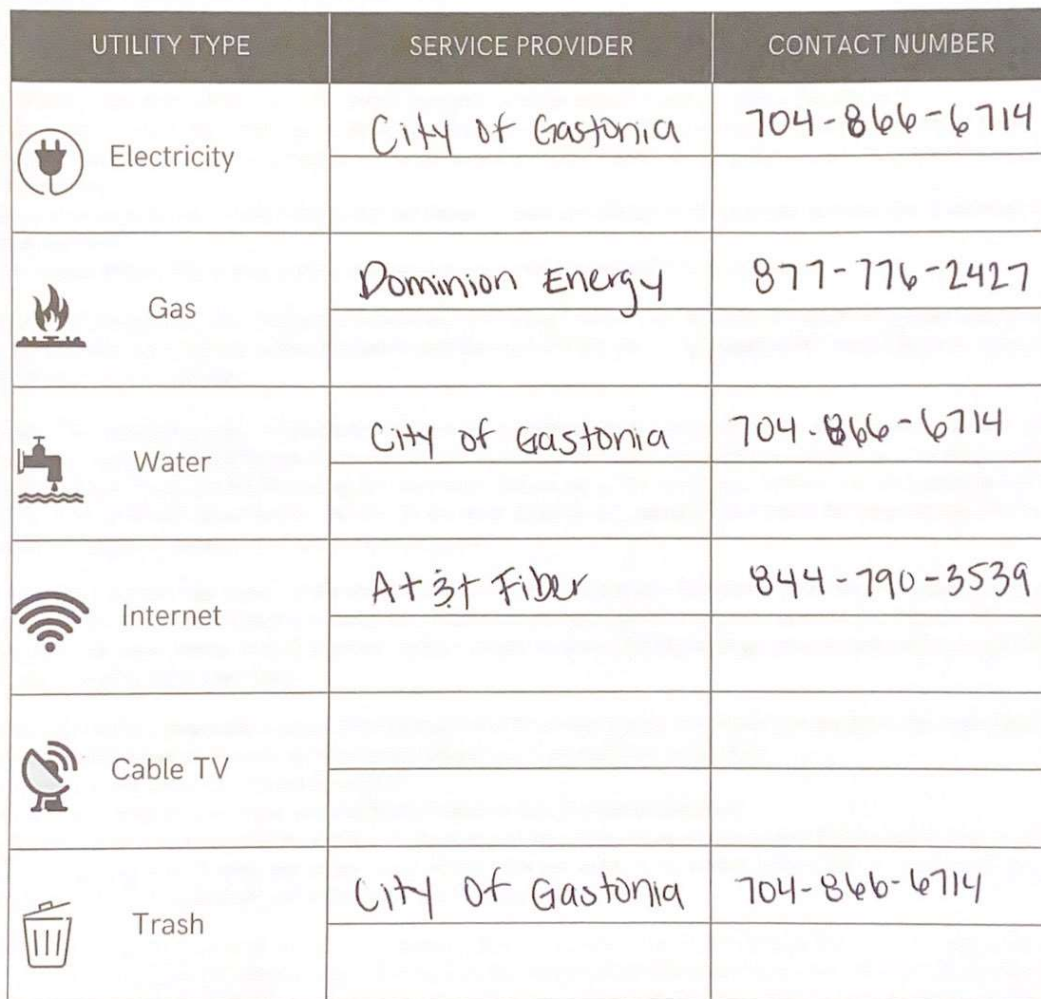 UTILITY TYPE SERVICE PROVIDER CONTACT NUMBER
Electricity City of Gastonia 704-866-6714
Gas Dominion Energy 877-776-2427
Water City of Gastonia 704-866-6714
Internet At&t Fiber 844-790-3539
Cable TV
Trash City of Gastonia 704-866-6714